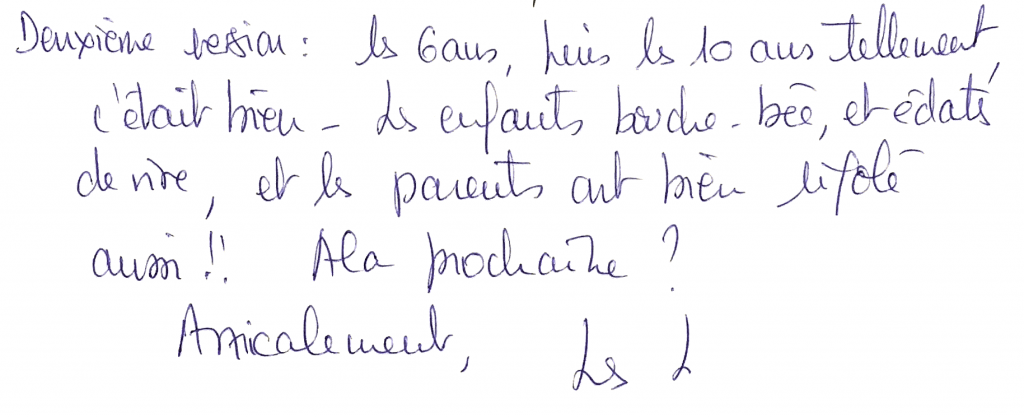 Deuxième session : les 6 ans, puis les 10 ans tellement
c'était bien - Les enfants bouche-bée, et éclaté
de rire, et les parents ont bien rifolé
aussi !! A la prochaine ?
Amicalement, Les L